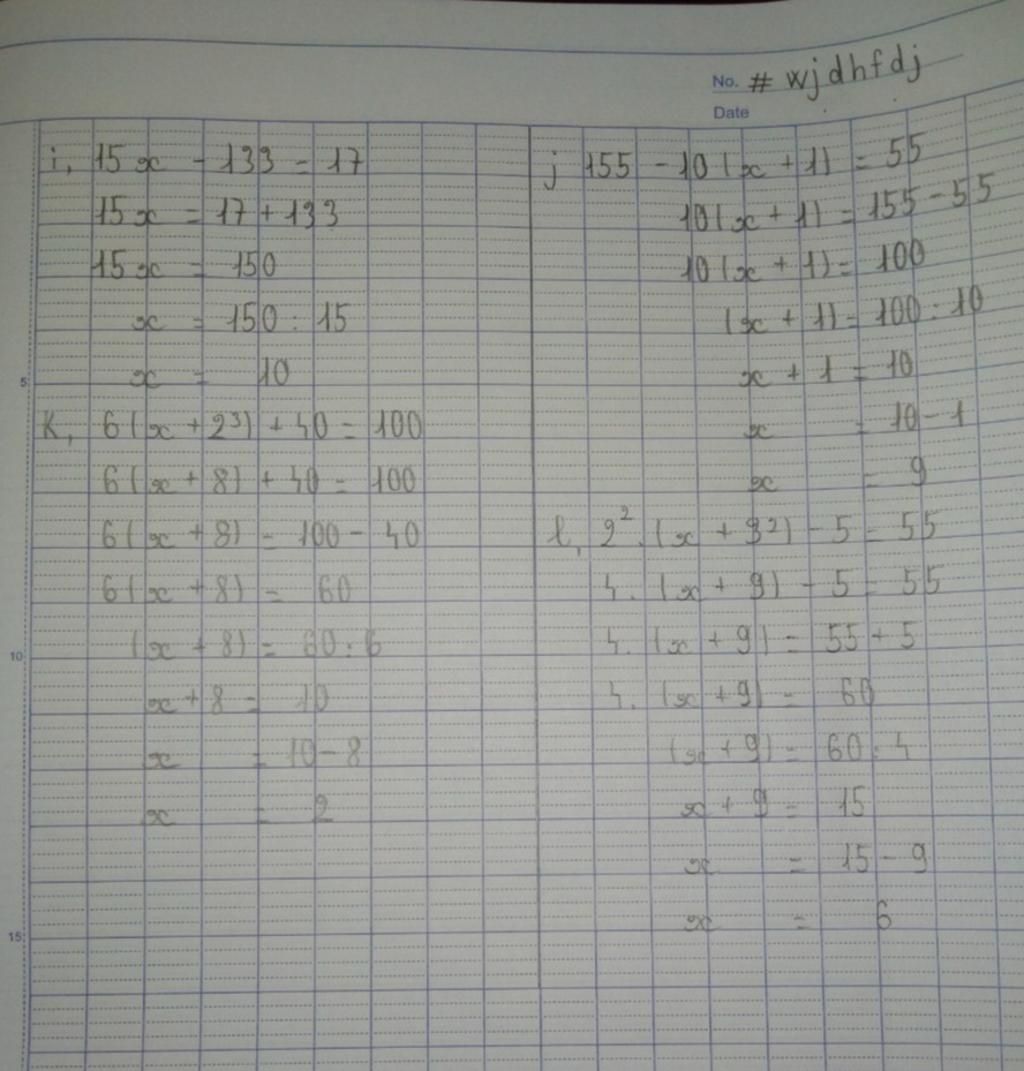 No. # wjdhfdj
Date
i, 15x - 133 = 17
15x = 17 + 133
15x = 150
x = 150 : 15
x = 10
K, 6(x + 2³) + 40 = 100
6(x + 8) + 40 = 100
6(x + 8) = 100 - 40
6(x + 8) = 60
(x + 8) = 60 : 6
x + 8 = 10
x = 10 - 8
x = 2
j 155 - 10(x + 1) = 55
10(x + 1) = 155 - 55
10(x + 1) = 100
(x + 1) = 100 : 10
x + 1 = 10
x = 10 - 1
x = 9
l, 2². (x + 3²) - 5 = 55
4. (x + 9) - 5 = 55
4. (x + 9) = 55 + 5
4. (x + 9) = 60
(x + 9) = 60 : 4
x + 9 = 15
x = 15 - 9
x = 6
5
10
15